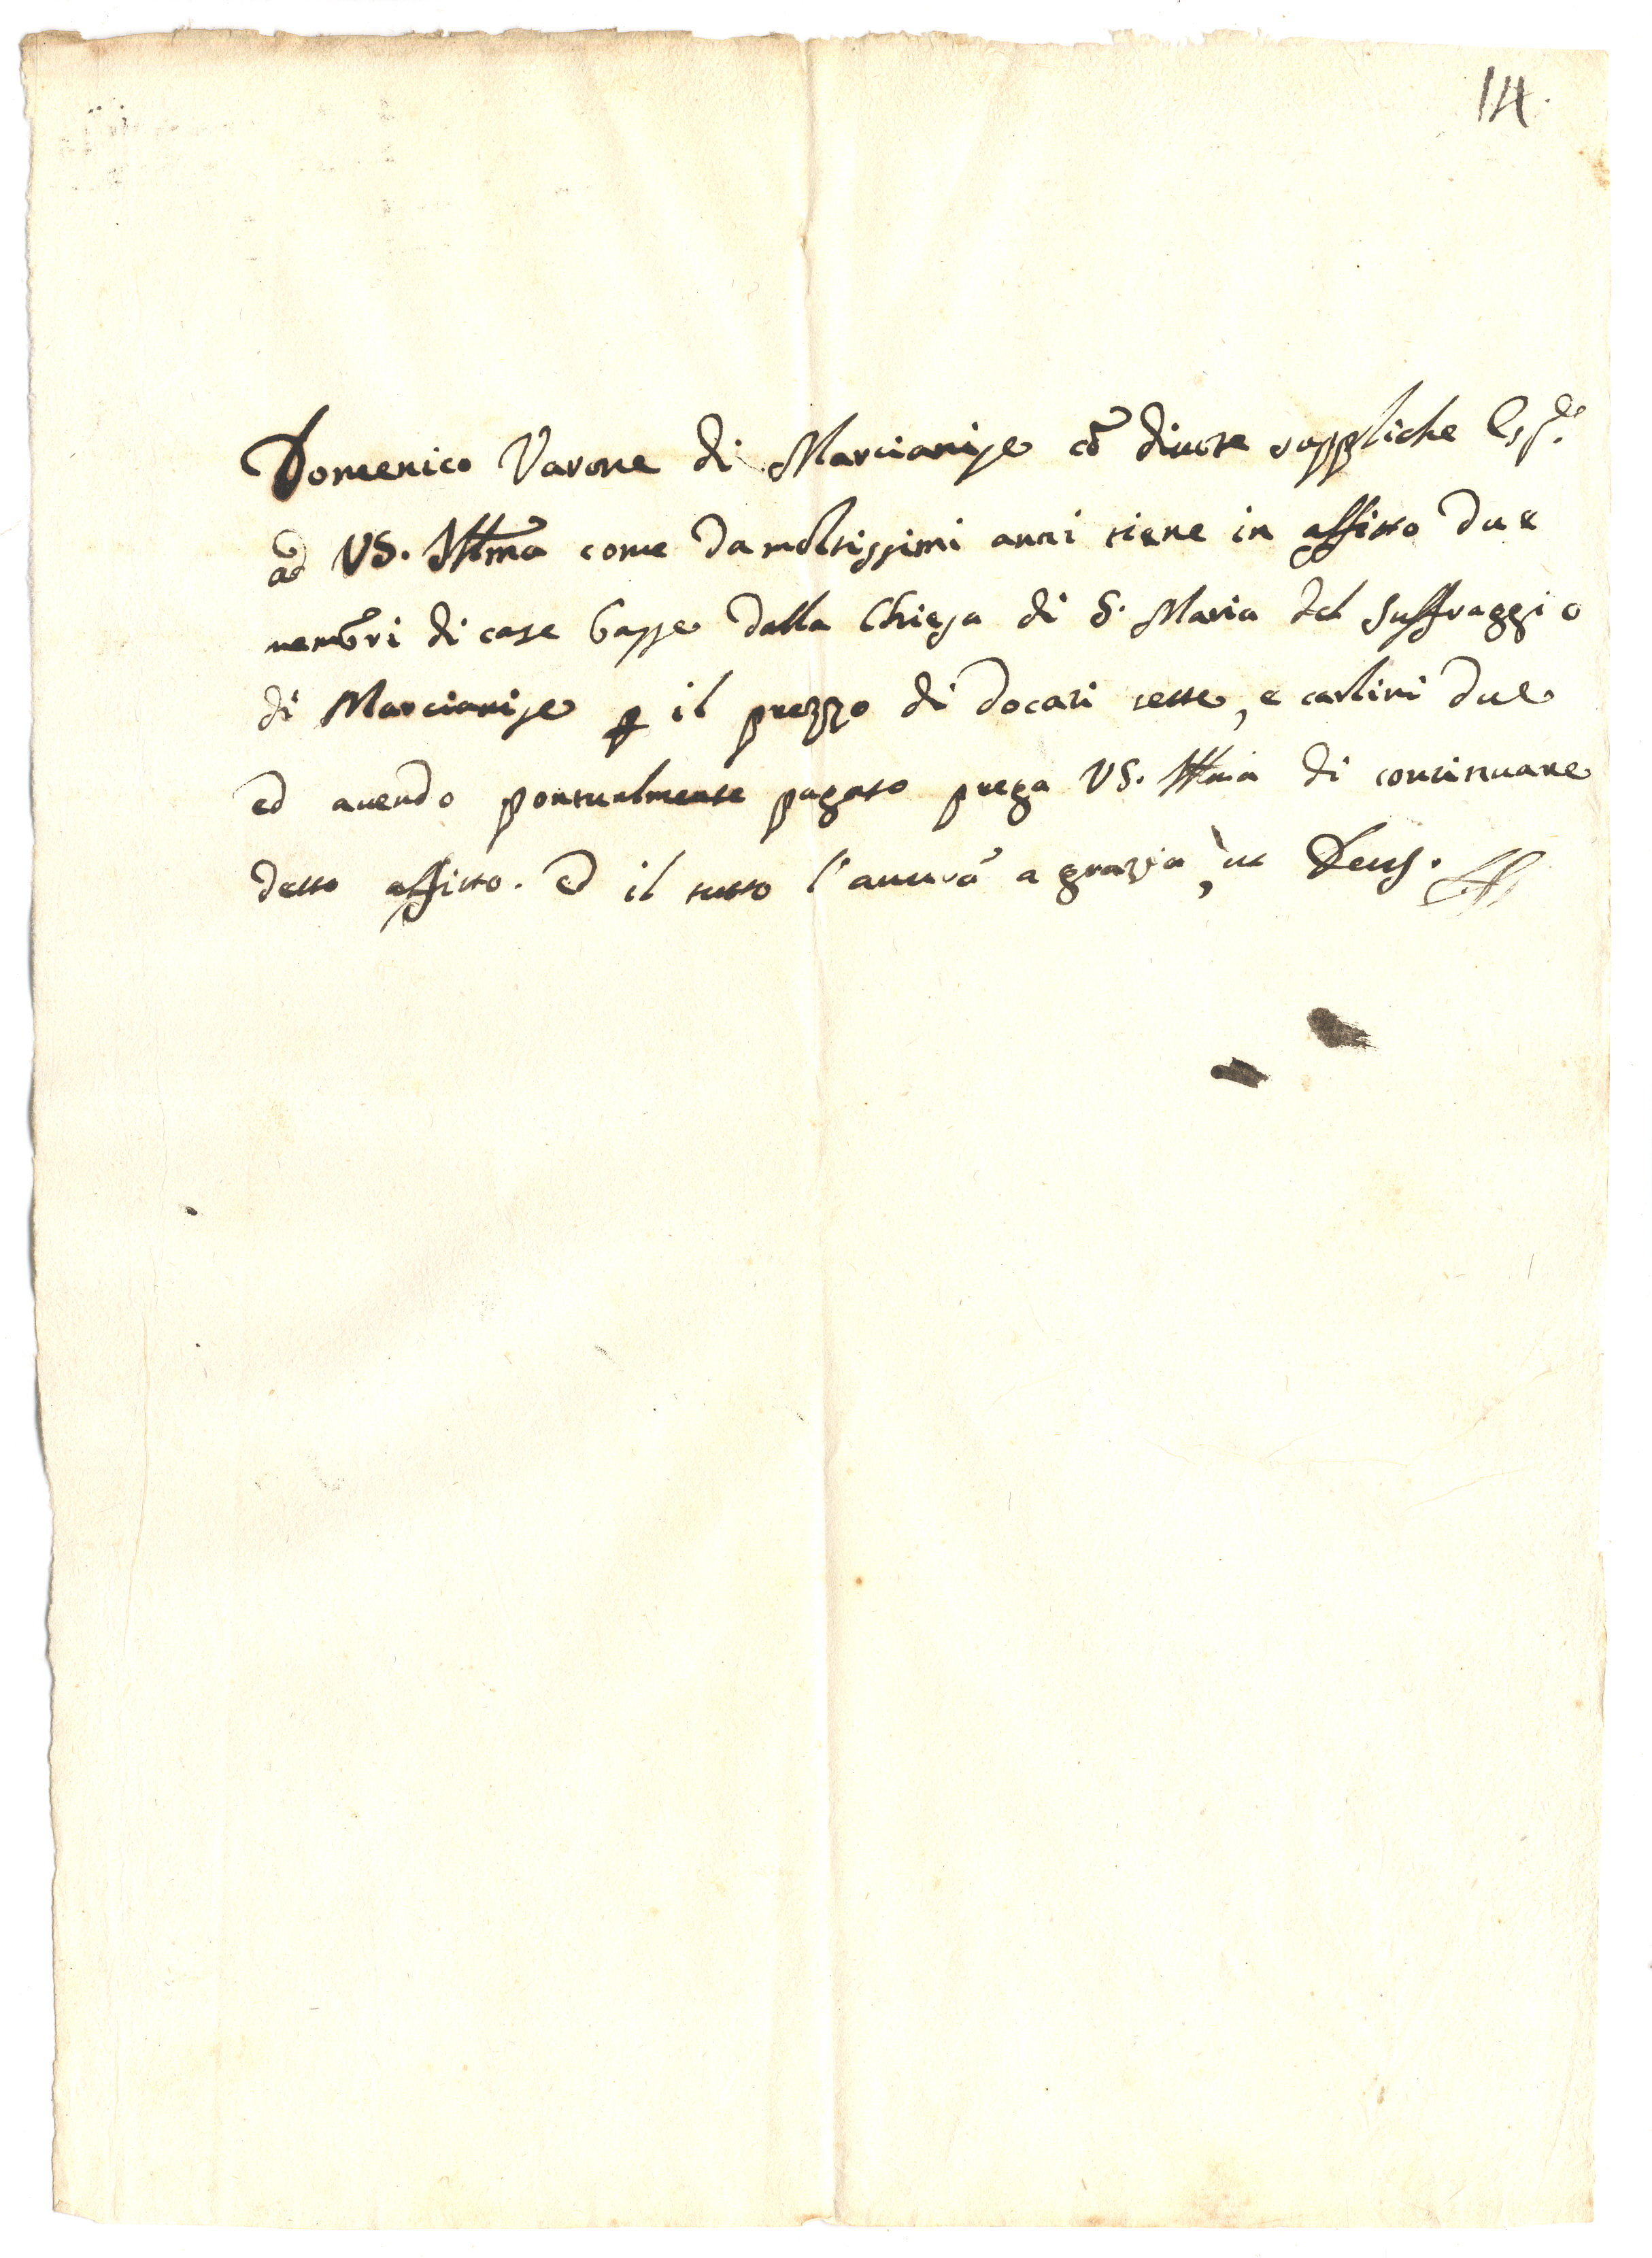 14.
Domenico Varone di Marcianise cõ divote suppliche esp.e
ad VS. Ill̃ma come da moltissimi anni tiene in affitto due
membri di case basse dalla Chiesa di S. Maria del Suffraggio
di Marcianise p il prezzo di docati sette, e carlini due
ed avendo pontualmente pagato prega VS. Ill̃ma di continuare
detto affitto. Ed il tutto l'averà a grazia, ut Deus.